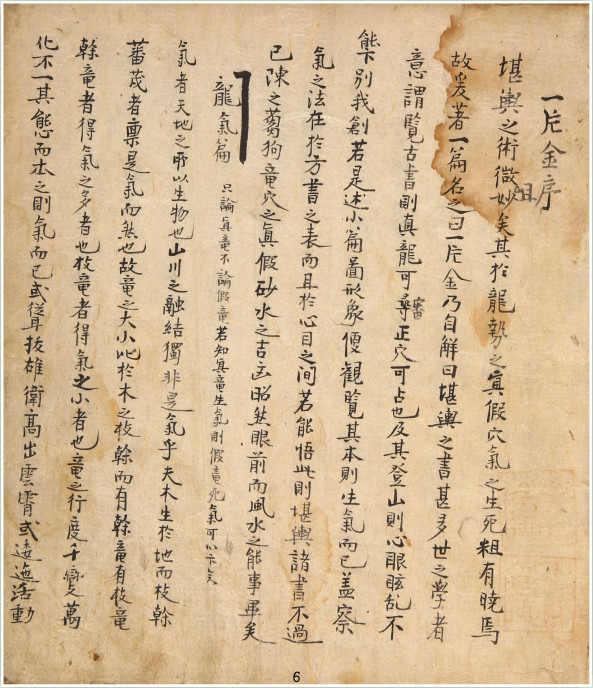 一片金序
堪輿之術微妙矣其於龍勢之眞假穴氣之生死粗有曉焉
粗
故爰著一篇名之曰一片金乃自解曰堪輿之書甚多世之學者
意謂覽古書則眞龍可尋正穴可占也及其登山則心眼眩乱不
審
能卞别我創若是述小篇啚形象便觀覽其本則生氣而已盖察
氣之法在於方書之表而且於心目之间若能悟此則堪輿諸書不過
已陳之蒭狗竜穴之眞假砂水之吉凶昭然眼前而風水之能事畢矣
龍氣篇 只論眞竜不論假竜若知眞竜生氣則假竜死氣可以卞矣
氣者天地之所以生物也山川之融結獨非是氣乎夫木生於地而枝榦
蕃茂者禀是氣而然也故竜之大小比於木之枝榦而有榦竜有枝竜
榦竜者得氣之多者也枝竜者得氣之小者也竜之行度千變萬
化不一其態而本之則氣而已或從耳拔雄衛高出雲霄或逶迤活動
6